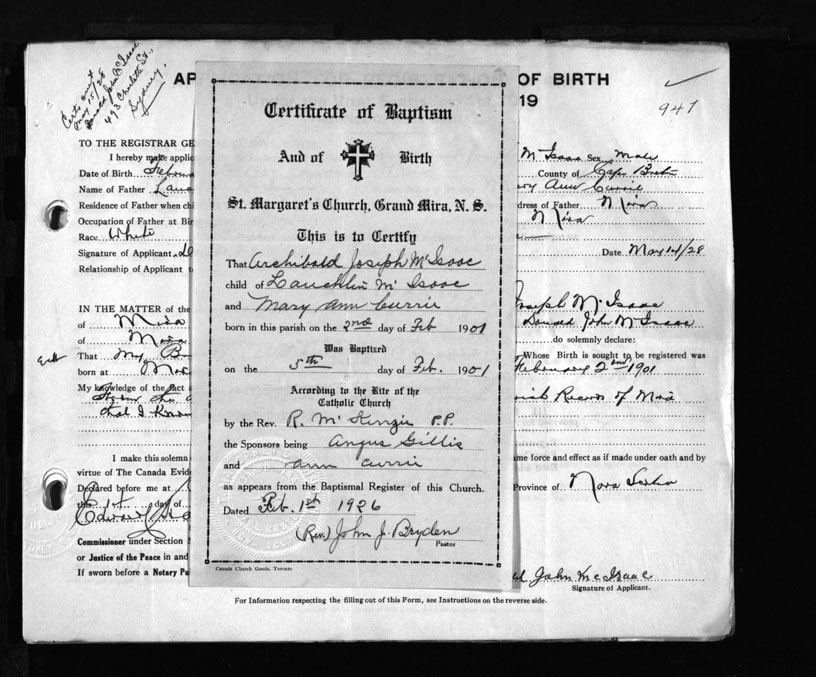 Certs sent
May 15/28
Donald John McIsaac
493 Charlotte St.,
Sydney.
AP
OF BIRTH
19
947
TO THE REGISTRAR GE
I hereby make applic
Mc Isaac Sex Male
Date of Birth Febru
County of Cape Breton
Name of Father Lauc
Ann Currie
Residence of Father when chi
dress of Father Mira
Occupation of Father at Bir
Mira
Race White
Signature of Applicant
Date May 14/28
Relationship of Applicant t
IN THE MATTER of the
Joseph McIsaac
of Mira
Donald John McIsaac
of Mira
do solemnly declare:
That My B
Whose Birth is sought to be registered was
born at
February 2nd 1901
My knowledge of the fact
Record of
that I know
I make this solemn
me force and effect as if made under oath and by
virtue of The Canada Evid
Declared before me at
Province of Nova Scotia
the
day of
Edward
Commissioner under Section
or Justice of the Peace in and
If sworn before a Notary Pu
John McIsaac
Signature of Applicant.
For Information respecting the filling out of this Form, see Instructions on the reverse side.
Certificate of Baptism
And of Birth
St. Margaret's Church, Grand Mira, N. S.
This is to Certify
That Archibald Joseph McIsaac
child of Lauchlin McIsaac
and Mary Ann Currie
born in this parish on the 2nd day of Feb 1901
Was Baptized
on the 5th day of Feb. 1901
According to the Rite of the
Catholic Church
by the Rev. R. McKenzie P.P.
the Sponsors being Angus Gillis
and Ann Currie
as appears from the Baptismal Register of this Church.
Dated Feb. 1st 1926
(Rev.) John J. Bryden
Pastor
Canada Church Goods, Toronto